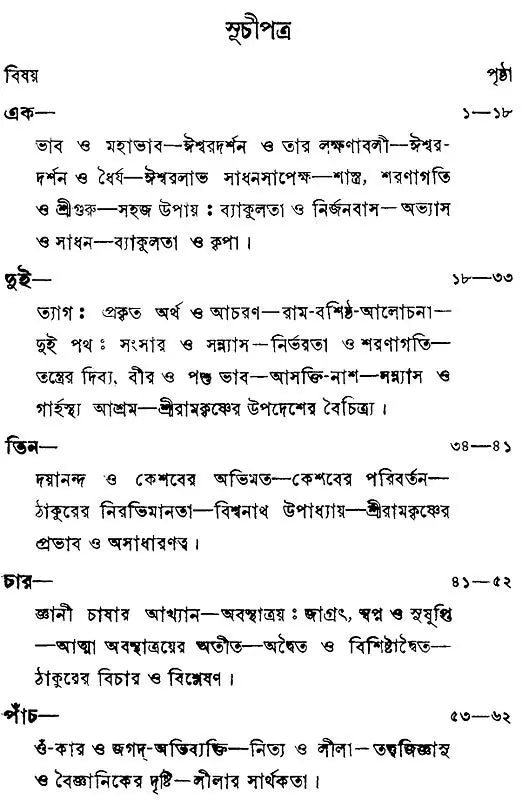 সূচীপত্র
বিষয় পৃষ্ঠা
এক— ১—১৮
ভাব ও মহাভাব—ঈশ্বরদর্শন ও তার লক্ষণাবলী—ঈশ্বর-
দর্শন ও ধৈর্য—ঈশ্বরলাভ সাধনসাপেক্ষ—শাস্ত্র, শরণাগতি
ও শ্রীগুরু—সহজ উপায় : ব্যাকুলতা ও নির্জনবাস—অভ্যাস
ও সাধন—ব্যাকুলতা ও কৃপা ।
দুই— ১৮—৩৩
ত্যাগ : প্রকৃত অর্থ ও আচরণ—রাম-বশিষ্ঠ-আলোচনা—
দুই পথ : সংসার ও সন্ন্যাস—নির্ভরতা ও শরণাগতি—
তন্ত্রের দিব্য, বীর ও পশু ভাব—আসক্তি-নাশ—সন্ন্যাস ও
গার্হস্থ্য আশ্রম—শ্রীরামকৃষ্ণের উপদেশের বৈচিত্র্য ।
তিন— ৩৪—৪১
দয়ানন্দ ও কেশবের অভিমত—কেশবের পরিবর্তন—
ঠাকুরের নিরভিমানতা—বিশ্বনাথ উপাধ্যায়—শ্রীরামকৃষ্ণের
প্রভাব ও অসাধারণত্ব ।
চার— ৪১—৫২
জ্ঞানী চাষার আখ্যান—অবস্থাত্রয় : জাগ্রৎ, স্বপ্ন ও সুষুপ্তি
—আত্মা অবস্থাত্রয়ের অতীত—অদ্বৈত ও বিশিষ্টাদ্বৈত—
ঠাকুরের বিচার ও বিশ্লেষণ ।
পাঁচ— ৫৩—৬২
ওঁ-কার ও জগদ্-অভিব্যক্তি—নিত্য ও লীলা—তত্ত্বজিজ্ঞাসু
ও বৈজ্ঞানিকের দৃষ্টি—লীলার সার্থকতা ।